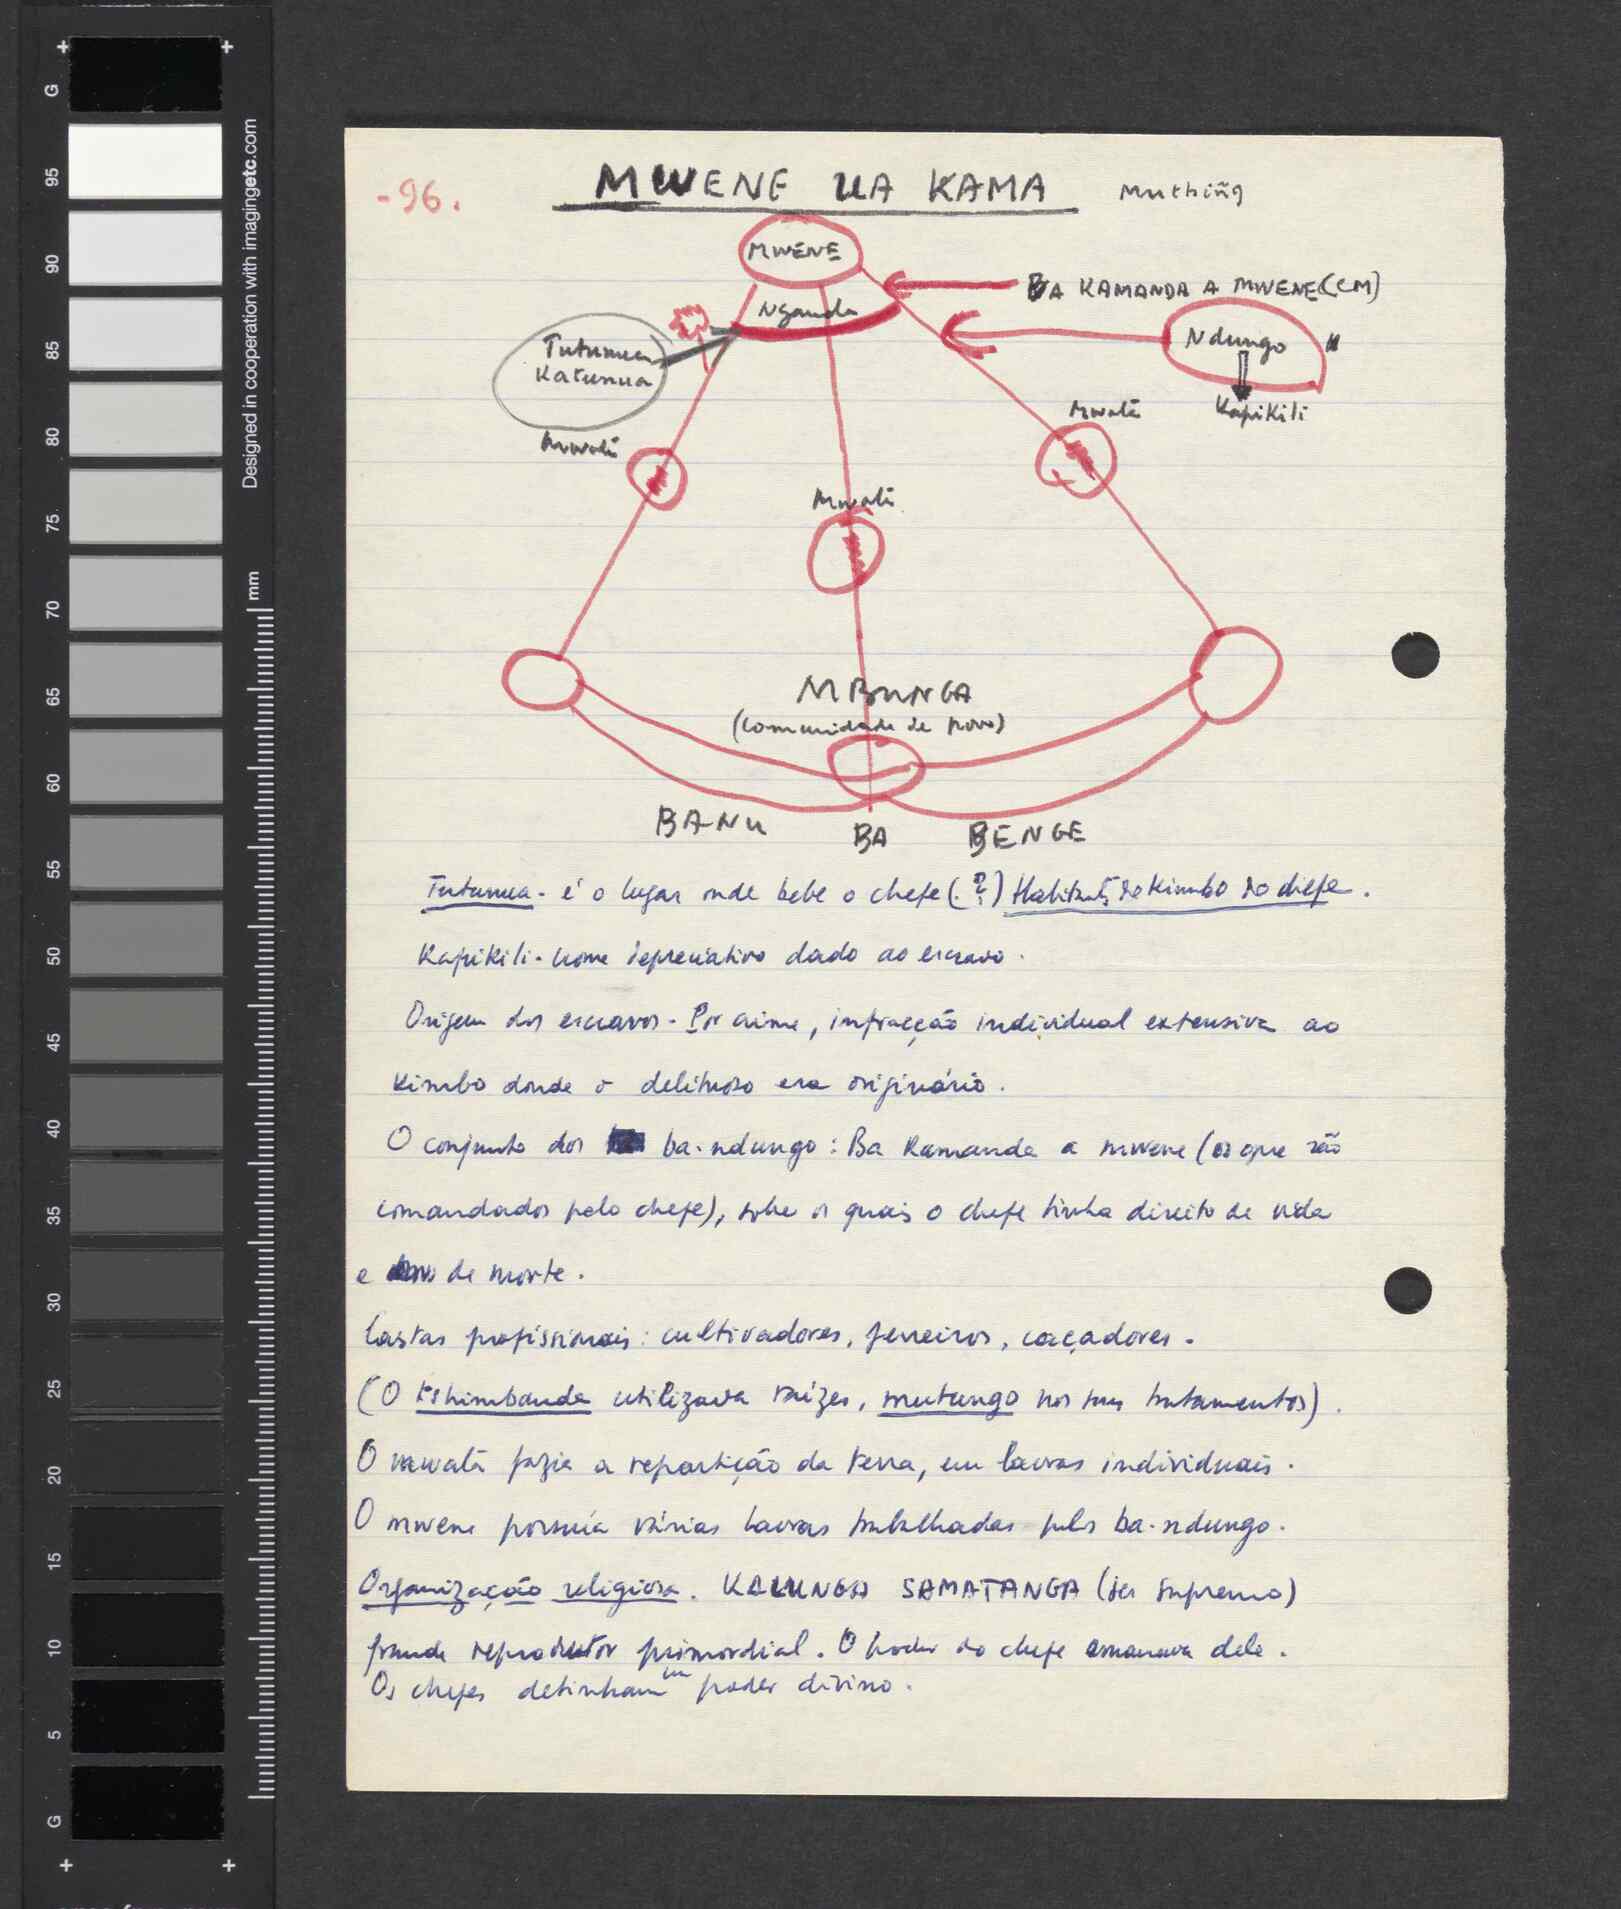 -96.
MWENE UA KAMA
MWENE
BA KAMANDA A MWENE (CM)
Nganda
Ndungo "
Tutumua
Katumua
Kapikili
Mwatã
Mwatã
Mwatã
MBUNGA
(comunidade de povo)
BANU BA BENGE
Tutumua - é o lugar onde bebe o chefe (.?) do Kimbo do chefe.
Kapikili - nome depreciativo dado ao escravo.
Origem dos escravos - Por crime, infracção individual extensiva ao
Kimbo donde o delituoso era originário.
O conjunto dos ba-ndungo: Ba Kamanda a mwene (os que são
comandados pelo chefe), sobre os quais o chefe tinha direito de vida
e de morte.
Castas profissionais: cultivadores, ferreiros, caçadores.
(O tshimbanda utilizava raízes, mutungo nos seus tratamentos).
O mwatã fazia a repartição da terra, em lavras individuais.
O mwene possuía várias lavras trabalhadas pelos ba-ndungo.
Organização religiosa. KALUNGA SAMATANGA (ser supremo)
grande reprodutor primordial. O poder do chefe emanava dele.
Os chefes detinham um poder divino.
G
95
90
85
80
75
70
65
60
55
50
45
40
35
30
25
20
15
10
5
G
Designed in cooperation with imagingetc.com
mm